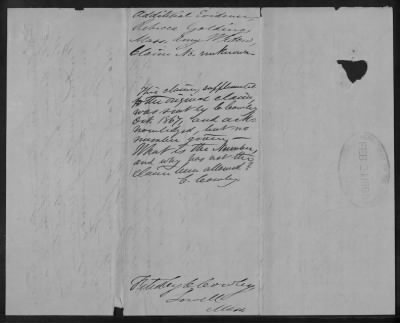 Additional Evidence,
Rebecca Golding,
Mass.
Claim No unknown.
This claim, supplemental
to the original claim,
was sent by C. Cowley
Oct. 1867, and ack-
nowledged, but no
number given.
What is the Number,
and why has not this
claim been allowed?
C. Cowley
C. Cowley,
Lowell
Mass